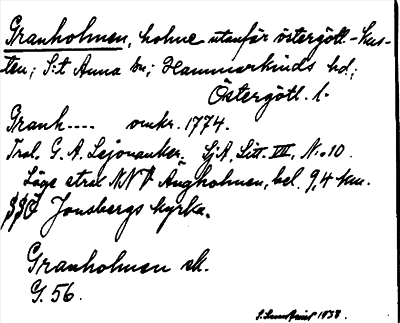 Granholmen, holme utanför östergötl.-kus-
ten; S:t Anna sn; Hammarkinds hd;
Östergötl. l.
Granh---- omkr. 1774.
Trol. G. A. Lejonanker. SjA, Litt. VIII, N:o 10.
Läge strax NNV Angholmen, bel. 9,4 km.
Jonsbergs kyrka.
Granholmen ek.
G. 56.
1938.